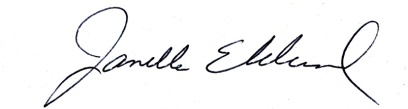 Janelle Eklund